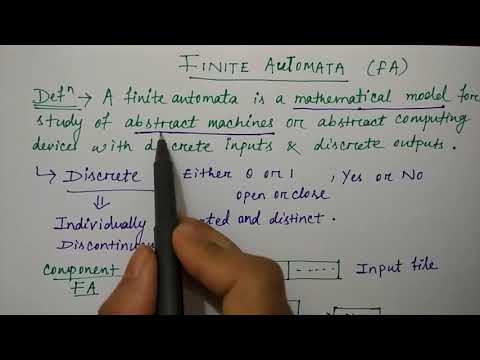 FINITE AUTOMATA (FA)
Defⁿ → A finite automata is a mathematical model for
study of abstract machines or abstract computing
devices with discrete inputs & discrete outputs.
↳ Discrete Either 0 or 1 , Yes or No
open or close
⇓
Individually and distinct.
component
FA
Input file